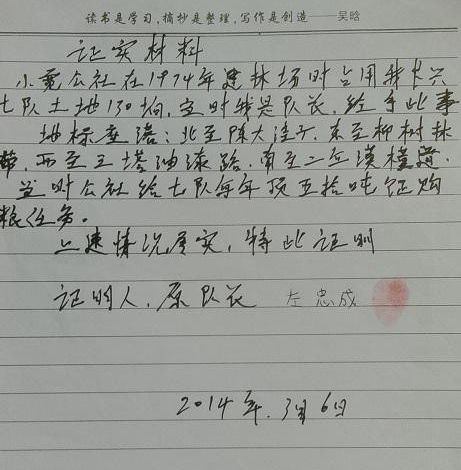 读书是学习,摘抄是整理,写作是创造——吴晗
证实材料
小宛公社在1974年建林场时占用我大兴
七队土地130垧,当时我是队长,经手此事
地标走向:北至陈大洼子,东至柳树林
带,西至三塔油漆路,南至二左模道,
当时公社给七队每年顶五拾吨征购
粮任务。
上述情况属实,特此证明
证明人,原队长 左忠成
2014年.3月6日